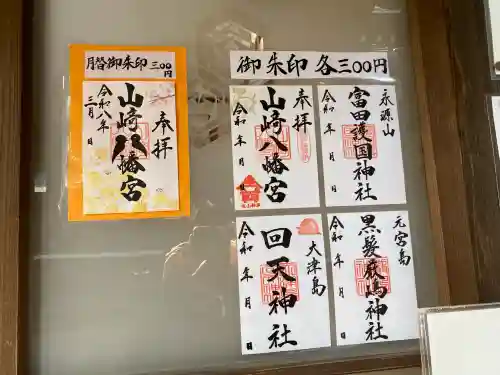 月替御朱印三〇〇円
奉拝
山崎八幡宮
令和八年
三月 日
御朱印 各三〇〇円
奉拝
山崎八幡宮
令和 年 月 日
永源山
富田護国神社
令和 年 月 日
大津島
回天神社
令和 年 月 日
元宮島
黒髪厳嶋神社
令和 年 月 日